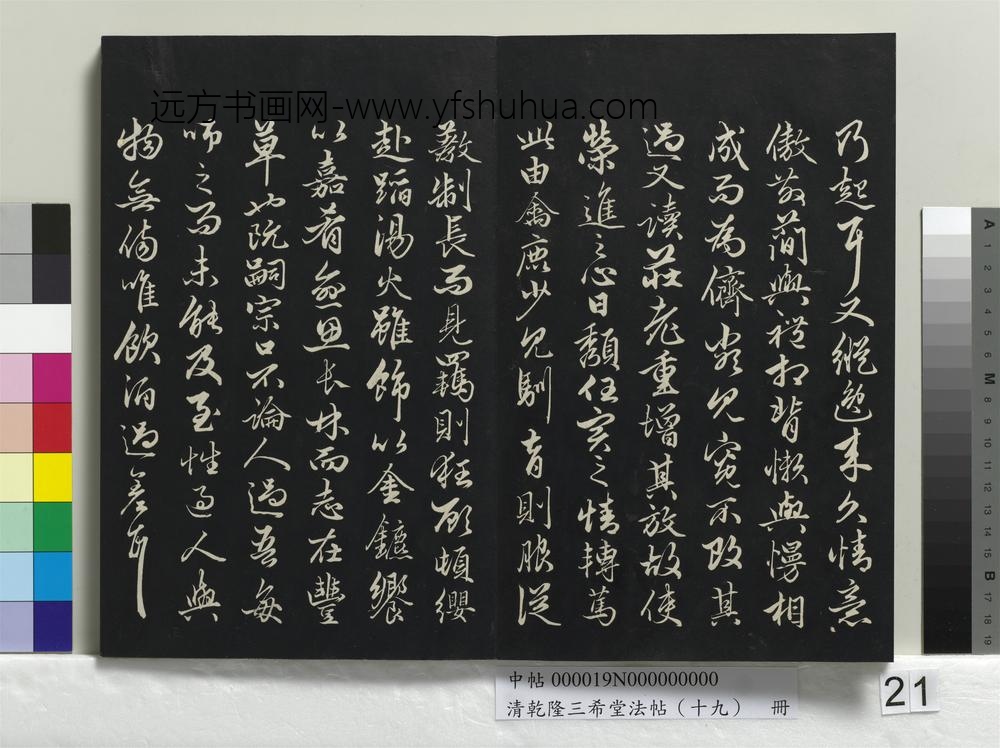 乃起耳又縱逸来久情意
傲散簡與禮相背懶與慢相
成而為儕類見寬不攻其
過又讀莊老重增其放故使
榮進之心日頹任實之情轉篤
此由禽鹿少見馴育則服從
教制長而見羈則狂顧頓纓
赴蹈湯火雖飾以金鑣饗
以嘉肴愈思長林而志在豐
草也阮嗣宗口不論人過吾每
師之而未能及至性過人與
物無傷唯飲酒過差耳
远方书画网-www.yfshuhua.com
中帖 000019N000000000
清乾隆三希堂法帖（十九） 冊
21
A 1 2 3 4 5 6 M 8 9 10 11 12 13 14 15 B 17 18 19